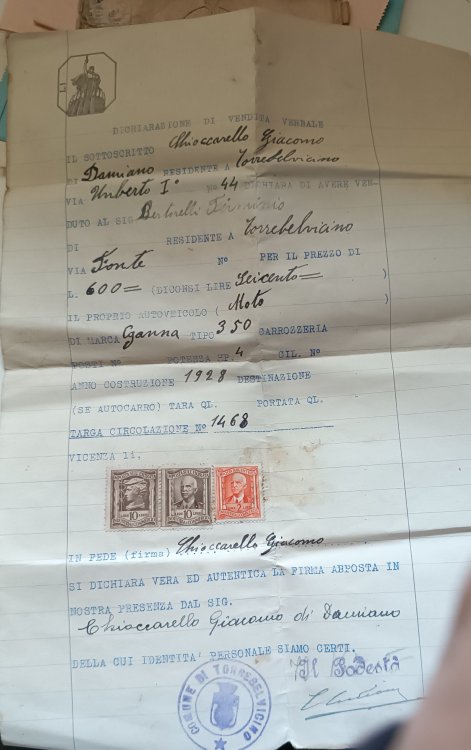 DICHIARAZIONE DI VENDITA VERBALE
IL SOTTOSCRITTO Chioccarello Giacomo
DI Damiano RESIDENTE A Torrebelviano
VIA Umberto I° N° 44 DICHIARA DI AVERE VEN-
DUTO AL SIG Bertorelli Firminio
DI RESIDENTE A Torrebelvicino
VIA Fonte N° PER IL PREZZO DI
L. 600= (DICONSI LIRE Seicento= )
IL PROPRIO AUTOVEICOLO ( Moto )
DI MARCA Ganna TIPO 350 CARROZZERIA
POSTI N° POTENZA HP 4 CIL. N°
ANNO COSTRUZIONE 1928 DESTINAZIONE
(SE AUTOCARRO) TARA QL. PORTATA QL.
TARGA CIRCOLAZIONE N° 1468
VICENZA li.
10 10
IN FEDE (firma) Chioccarello Giacomo
SI DICHIARA VERA ED AUTENTICA LA FIRMA ABPOSTA IN
NOSTRA PRESENZA DAL SIG.
Chioccarello Giacomo di Damiano
DELLA CUI IDENTITA' PERSONALE SIAMO CERTI.
Il Podestà
COMUNE DI TORREBELVICINO